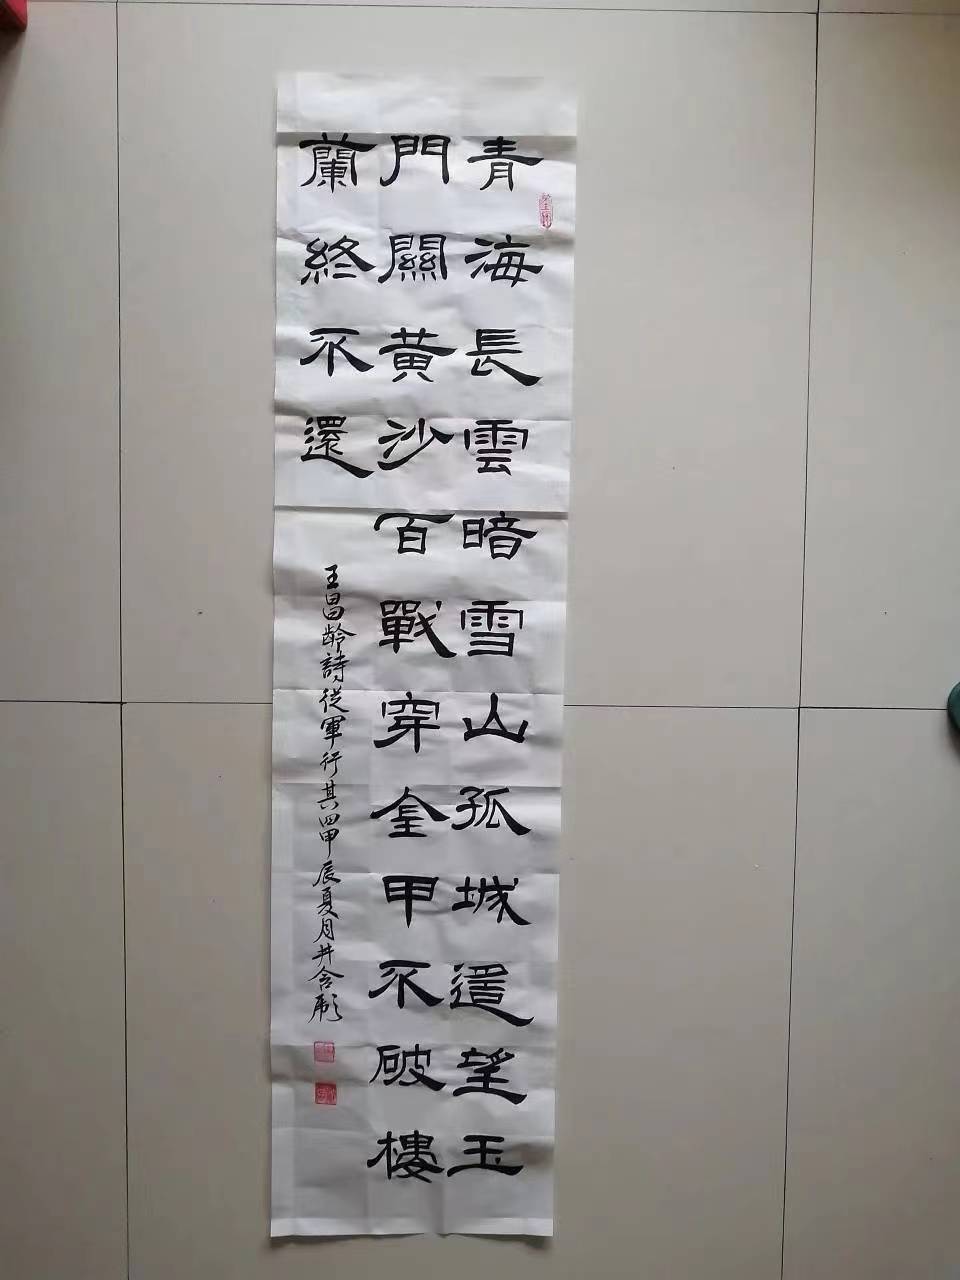 青海長雲暗雪山孤城遥望玉
門關黃沙百戰穿金甲不破樓
蘭終不還
王昌齡詩從軍行其四甲辰夏月井含彪